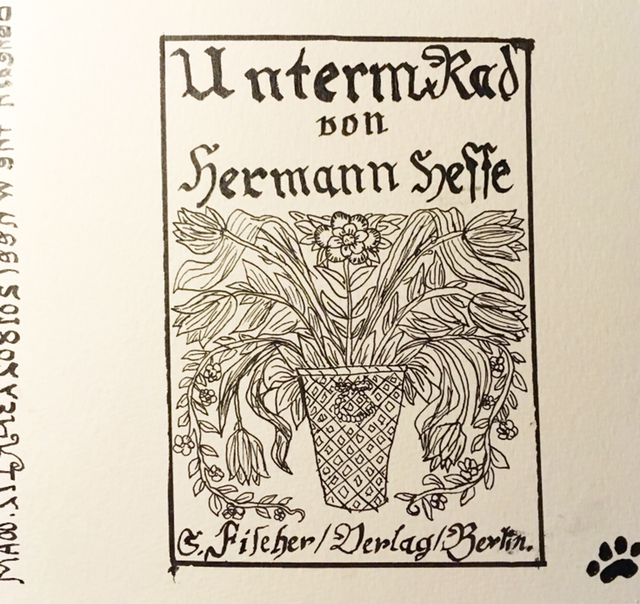 Unterm Rad
von
Hermann Hesse
S. Fischer/Verlag/Berlin.